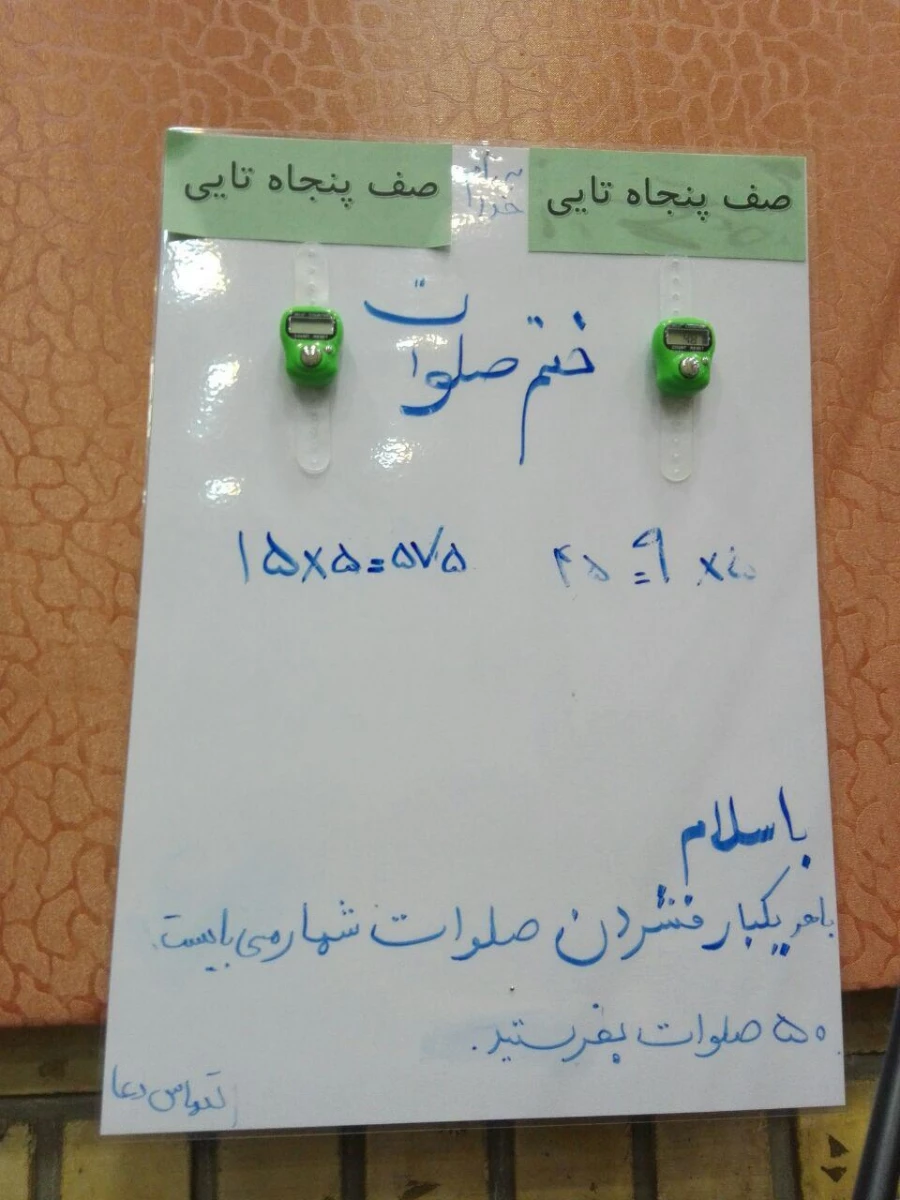 صف پنجاه تایی
برای خدا
صف پنجاه تایی
ختم صلوات
۱۵×۵=۵۷۵
۴۵ = ۹ ×
با سلام
با هر یکبار فشردن صلوات شمار می بایست
۵۰ صلوات بفرستید.
التماس دعا